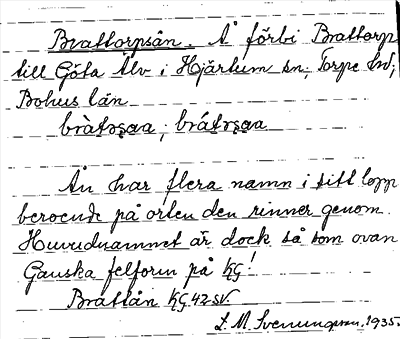 Brattorpsån. Å förbi Brattorp
till Göta Älv i Hjärtum sn; Torpe hd;
Bohus län
bràtɔṣaa; brátɔṣaa
Ån har flera namn i sitt lopp
beroende på orten den rinner genom.
Huvudnamnet är dock så som ovan
Ganska felform på KG!
Brattån KG 42 sv.
L. M. Svenungsson, 1935.